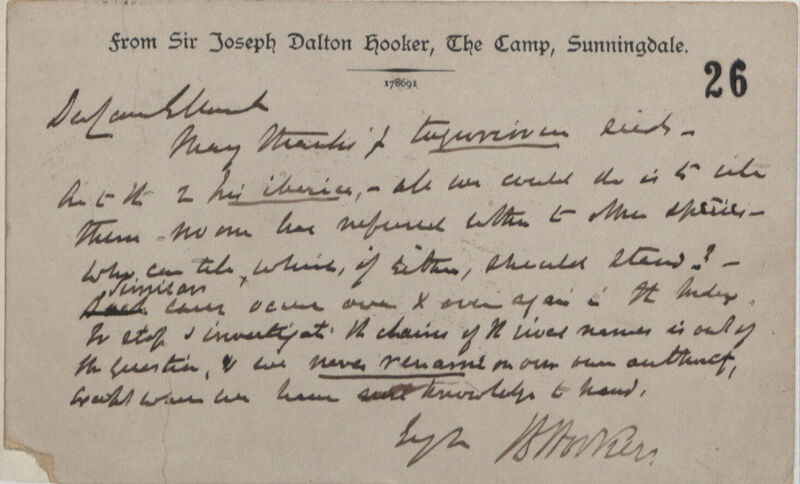 From Sir Joseph Dalton Hooker, The Camp, Sunningdale.
26
178691
Dear
Many thanks for seeds -
As to the 2 Iris iberica, - all we could do is to cite
them - no one has referred either to other species -
who can tell, which, if either, should stand? -
similar cases occur over & over again in the Index.
To stop & investigate the claims of the rival names is out of
the question, & we never rename on our own authority,
except when we have knowledge to hand.
J D Hooker